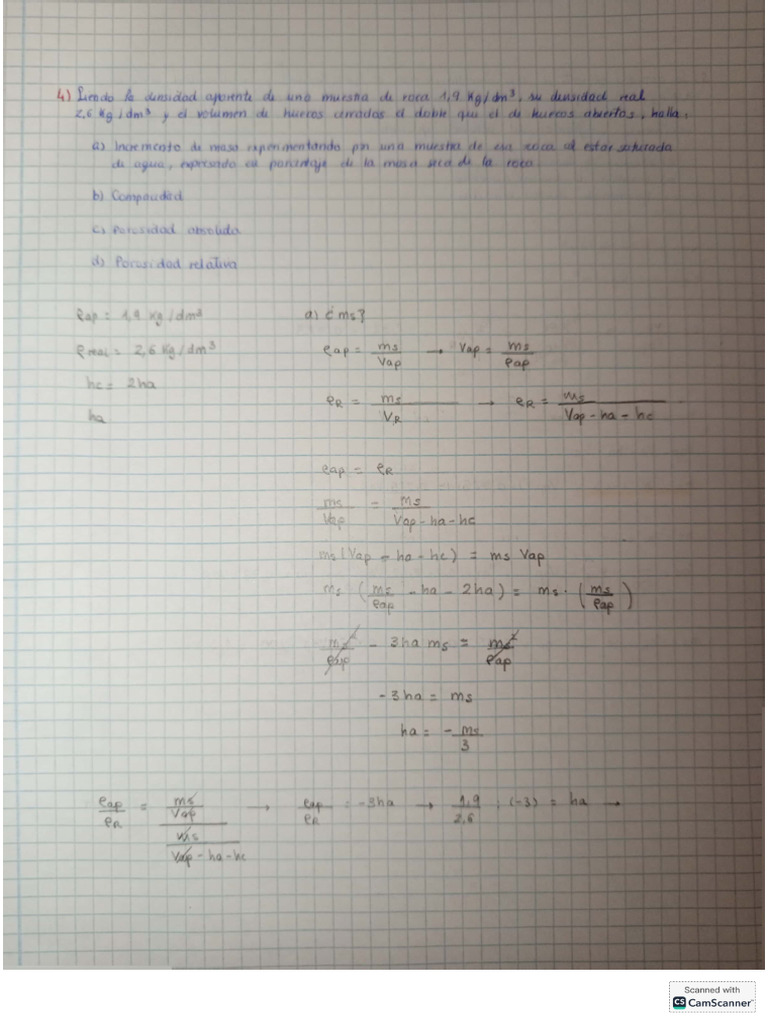 4) Siendo la densidad aparente de una muestra de roca 1,9 Kg/dm³, su densidad real
2,6 Kg/dm³ y el volumen de huecos cerrados el doble que el de huecos abiertos, halla:
a) Incremento de masa experimentando por una muestra de esa roca al estar saturada
de agua, expresando en porcentaje de la masa seca de la roca
b) Compacidad
c) Porosidad absoluta
d) Porosidad relativa
ρap = 1,9 Kg/dm³
ρreal = 2,6 Kg/dm³
hc = 2ha
ha
a) ¿ms?
ρap = ms/Vap → Vap = ms/ρap
ρR = ms/VR → ρR = ms/(Vap - ha - hc)
ρap = ρR
ms/Vap = ms/(Vap - ha - hc)
ms (Vap - ha - hc) = ms Vap
ms (ms/ρap - ha - 2ha) = ms · (ms/ρap)
ms²/ρap - 3ha ms = ms²/ρap
-3ha = ms
ha = - ms/3
ρap/ρR = (ms/Vap)/(ms/(Vap - ha - hc)) → ρap/ρR = -3ha → 1,9/2,6 : (-3) = ha →
Scanned with
CS CamScanner